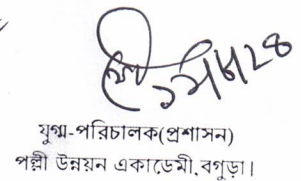 যুগ্ম-পরিচালক(প্রশাসন)
পল্লী উন্নয়ন একাডেমী,বগুড়া।